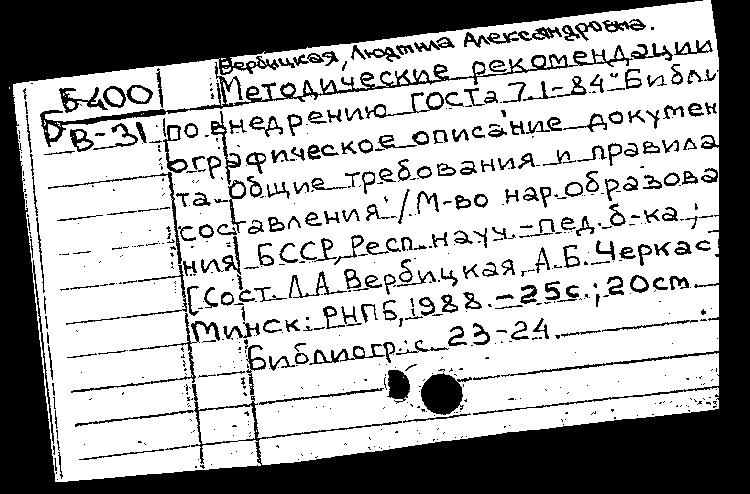 Вербицкая, Людмила Александровна.
Б-400
В-31
Методические рекомендации
по внедрению ГОСТа 7.1-84 "Библи
ографическое описание докумен
та. Общие требования и правила
составления" / М-во нар. образова
ния БССР, Респ. науч.-пед. б-ка ;
[Сост. Л.А Вербицкая, А.Б. Черкас.
Минск: РНПБ, 1988. - 25с.; 20см
Библиогр.: с. 23-24.